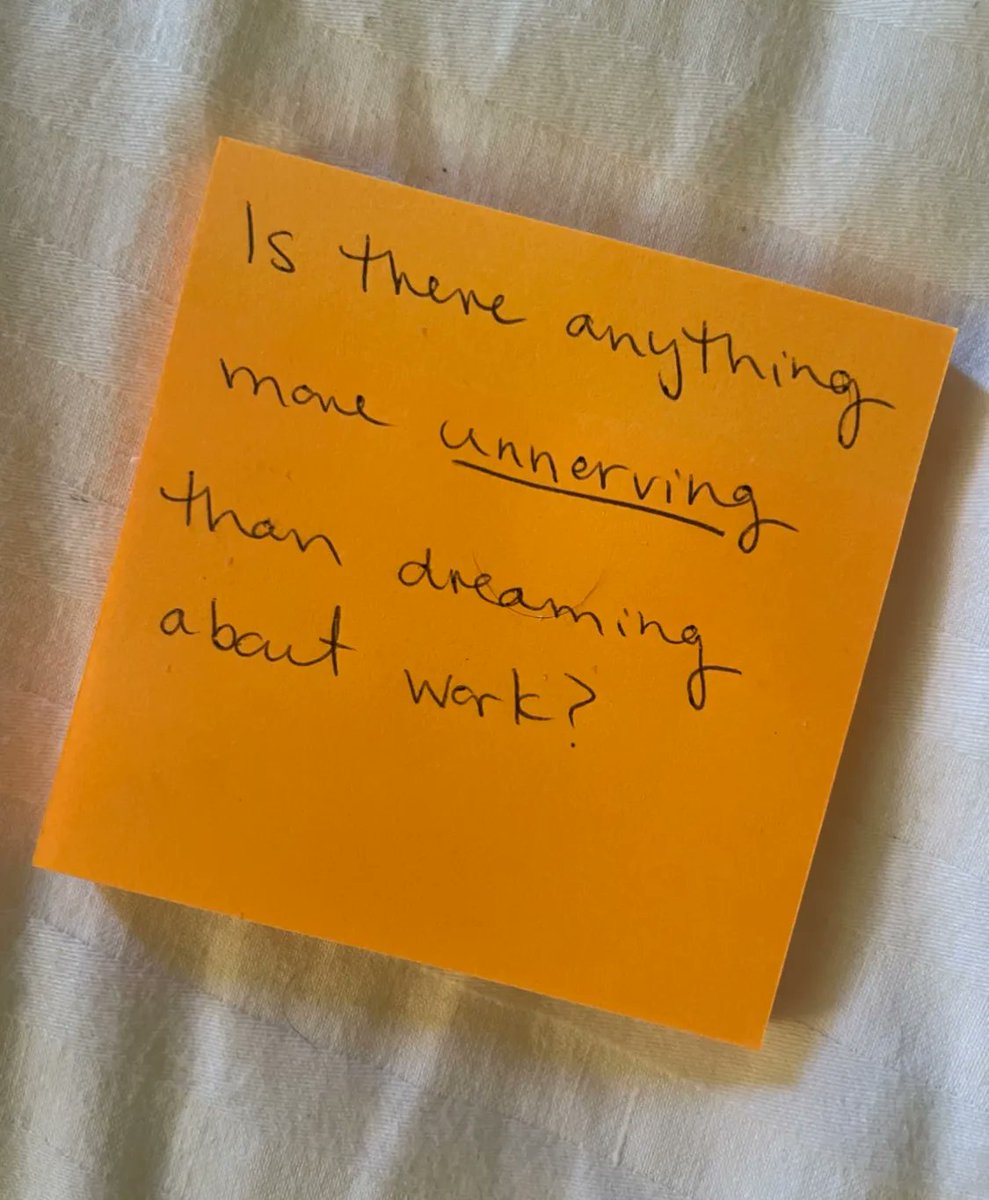 Is there anything
more unnerving
than dreaming
about work?